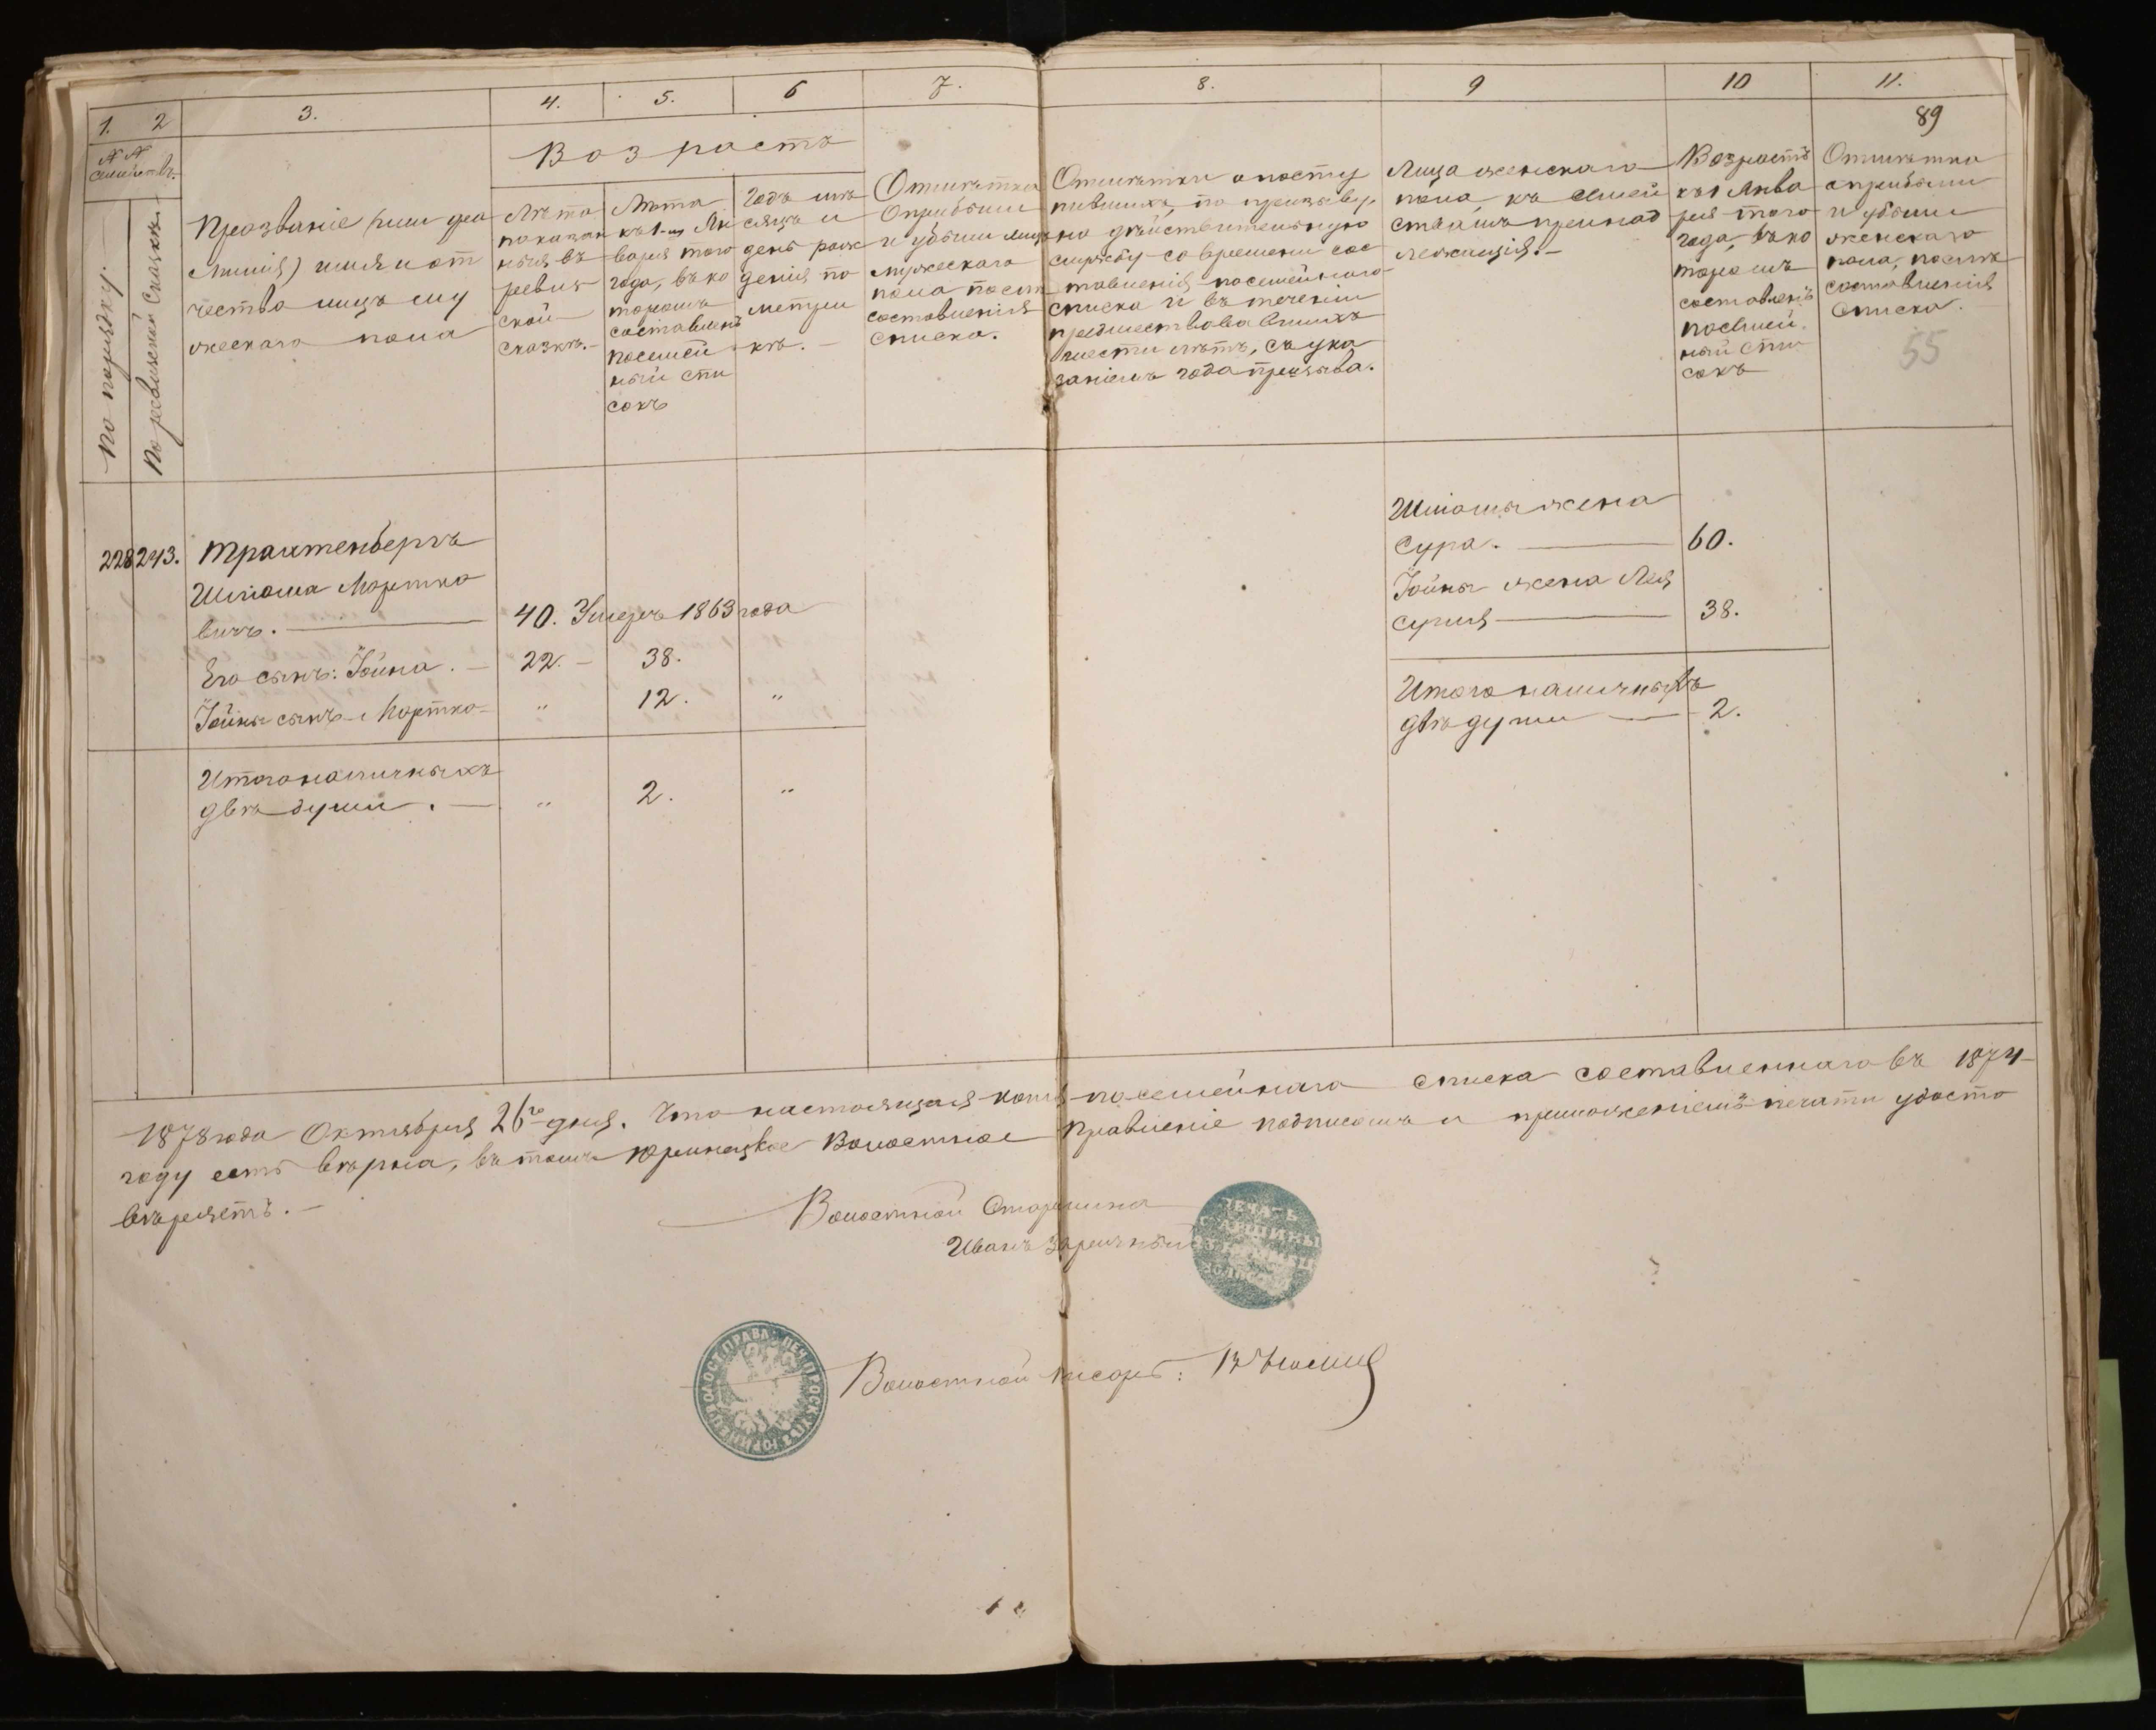 1. 2 3. 4. 5. 6 7. 8. 9 10 11.
89
55
№ №
семействъ.
По порядку.
По ревизской сказкѣ.
Прозваніе (или фа
милія) имя и от
чество лицъ му
жескаго пола
Возрастъ
Лѣта
показан
ныя въ
ревиз
ской
сказкѣ.
Лѣта
къ 1-му Ян
варя того
года, въ ко
торомъ
составленъ
посемей
ный спи
сокъ
Годъ мѣ
сяцъ и
день рож
денія по
метри
кѣ.
Отмѣтка
о прибыли
и убыли лицъ
мужескаго
пола послѣ
составленія
списка.
Отмѣтки о посту
пившихъ, по призыву,
на дѣйствительную
службу со времени сос
тавленія посемейнаго
списка и въ теченіи
предшествовавшихъ
шести лѣтъ, съ ука
заніемъ года призыва.
Лица женскаго
пола, къ семей
ствамъ принад
лежащія.
Возрастъ
къ 1 Янва
ря того
года, въ ко
торомъ
составленъ
посемей
ный спи
сокъ
Отмѣтка
о прибыли
и убыли
женскаго
пола, послѣ
составленія
списка.
228 243. Трахтенбергъ
Шлиома Мортко
вичъ. 40. Умеръ 1863 года
Его сынъ: Іойна. 22. 38.
Іойны сынъ Мортко 〃 12. 〃
Итого наличныхъ
двѣ души. 〃 2. 〃
Шлиомы жена
Сура. 60.
Іойны жена Лея
Суриля 38.
Итого наличныхъ
двѣ души 2.
1878 года Октября 26го дня. Что настоящая копія посемейнаго списка составленнаго въ 1874
году есть вѣрна, въ томъ Юринецкое Волостное Правленіе подписомъ и приложеніемъ печати удосто
вѣряетъ.
Волостной Старшина
Иванъ Заречный
ПЕЧАТЬ
СТАРШИНЫ
Волостной писарь: